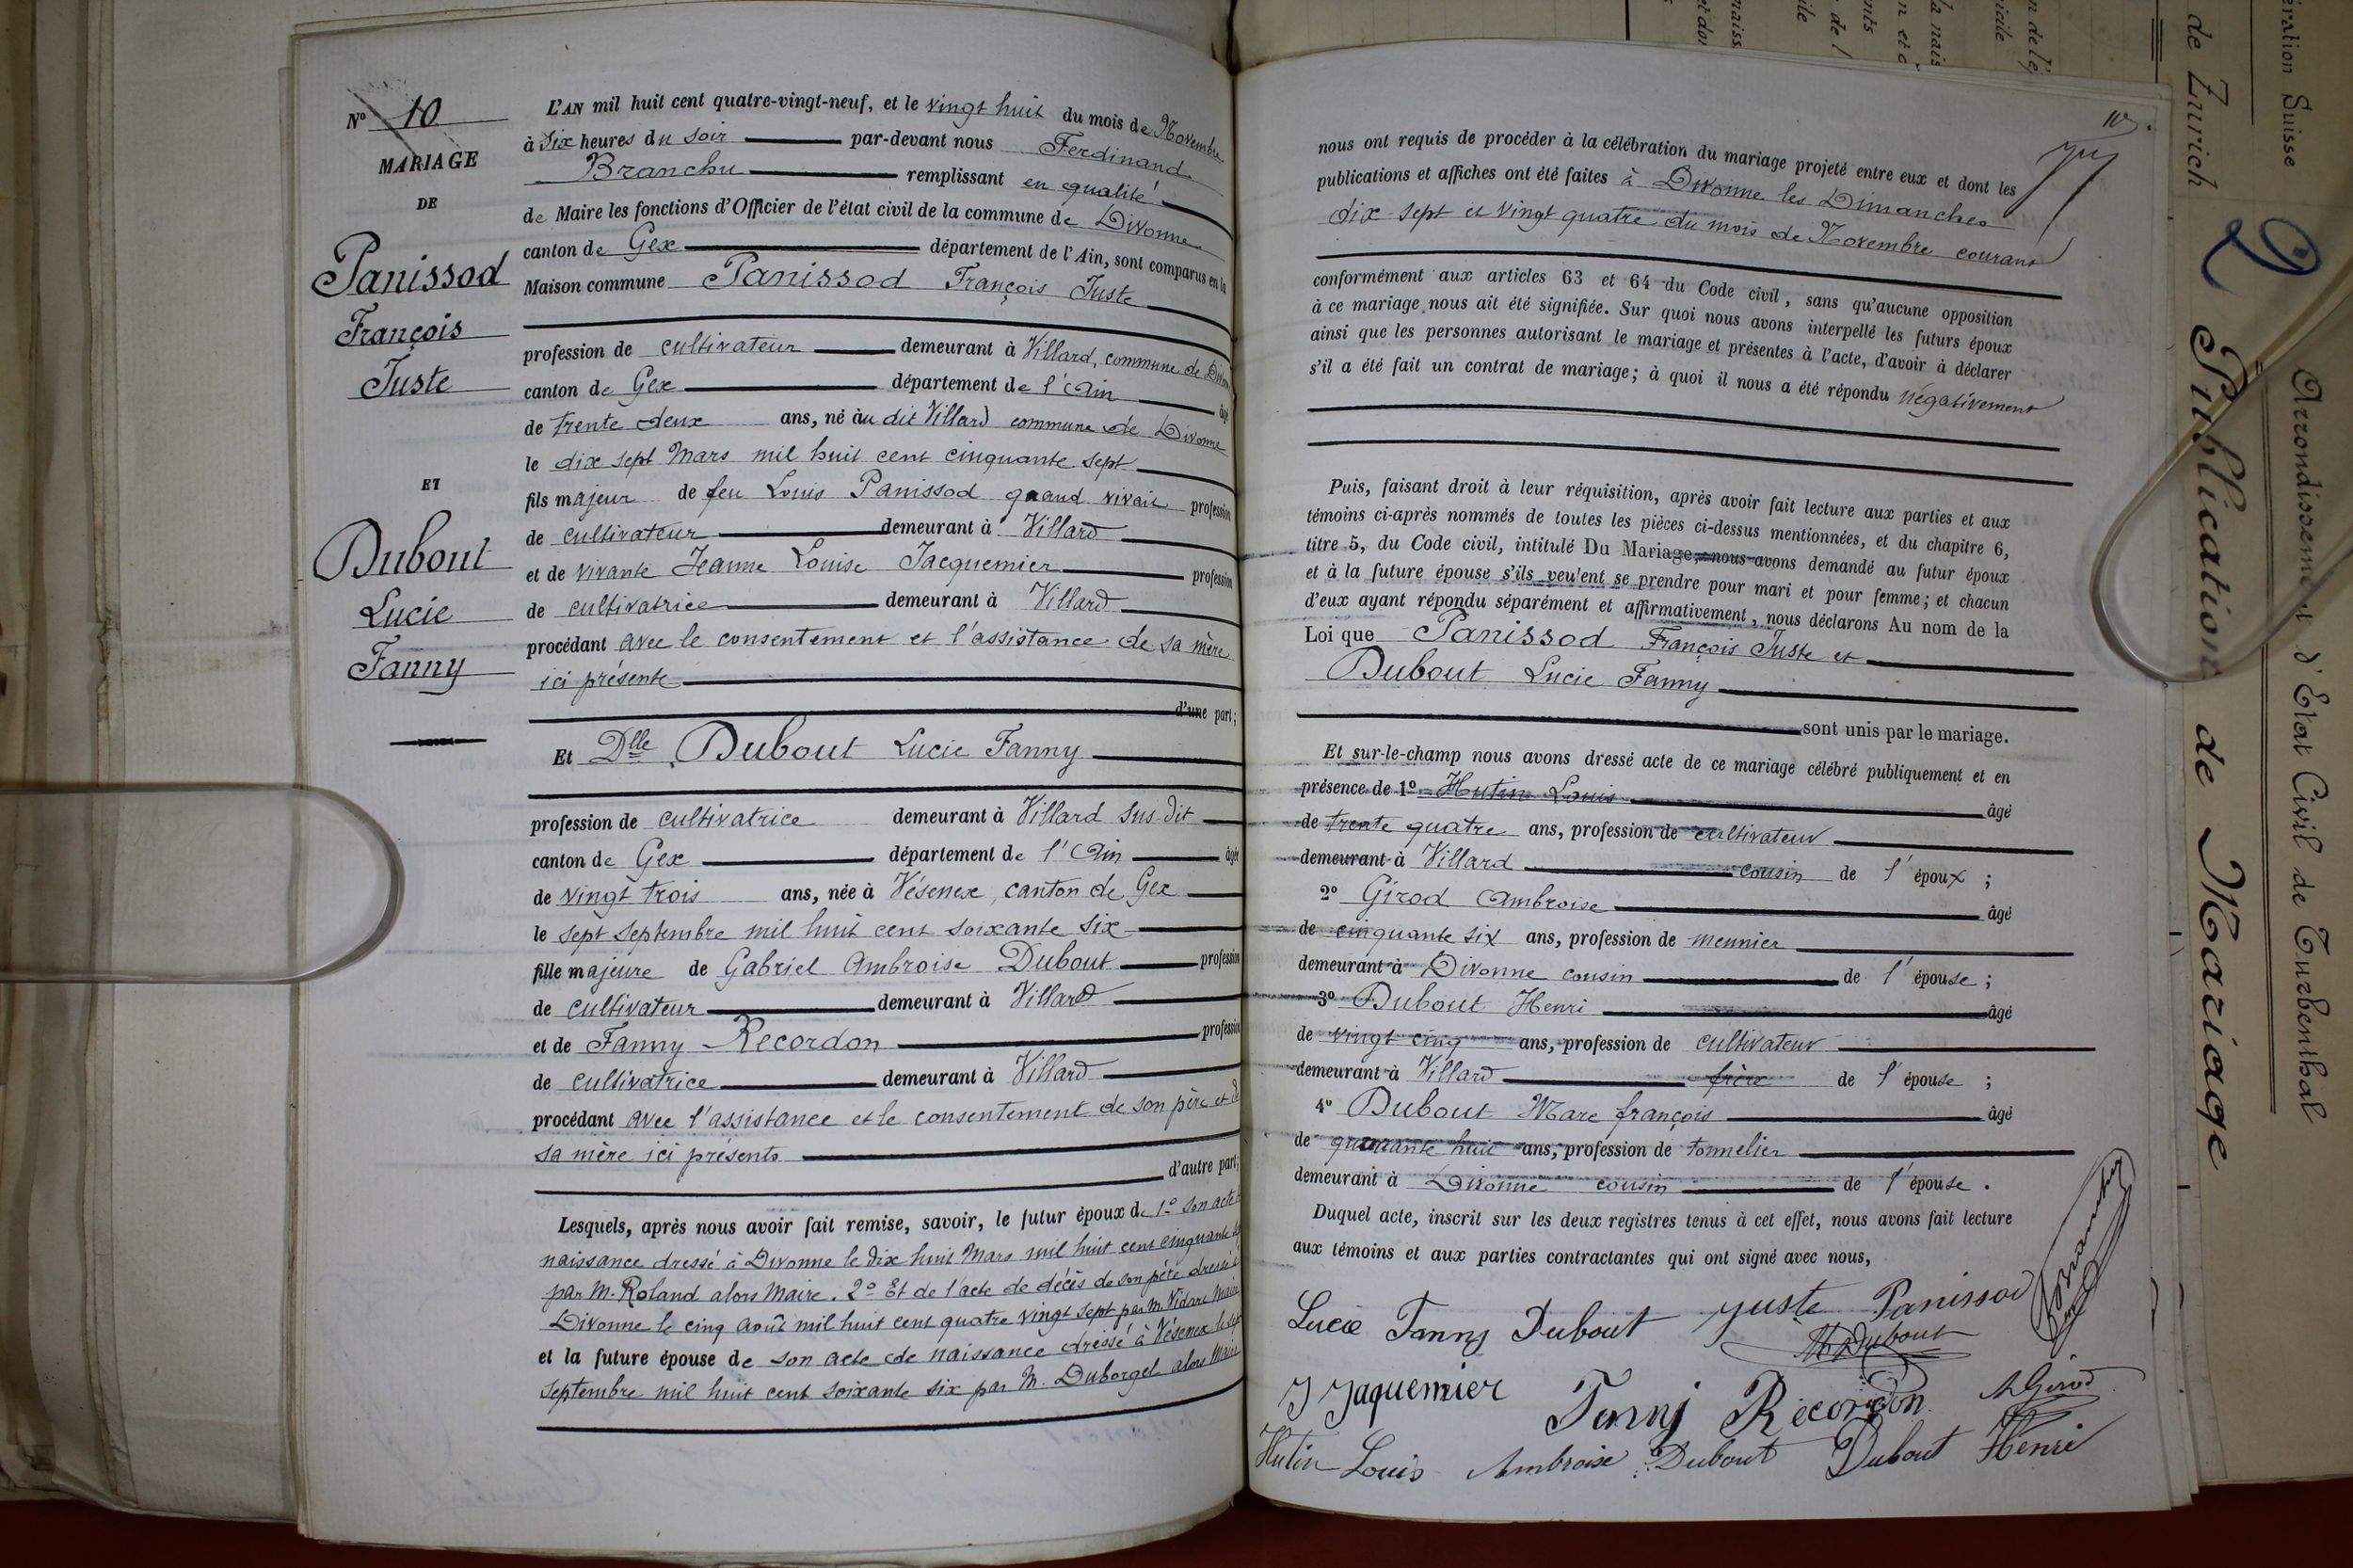 N° 10
MARIAGE
DE
Panissod
François
Juste
ET
Dubout
Lucie
Fanny
L'AN mil huit cent quatre-vingt-neuf, et le vingt huit du mois de Novembre
à six heures du soir par-devant nous Ferdinand
Branchu remplissant en qualité
de Maire les fonctions d'Officier de l'état civil de la commune de Divonne
canton de Gex département de l'Ain, sont comparus en la
Maison commune Panissod François Juste
profession de cultivateur demeurant à Villard, commune de Divonne
canton de Gex département de l'Ain âgé
de trente deux ans, né au dit Villard commune de Divonne
le dix sept Mars mil huit cent cinquante sept
fils majeur de feu Louis Panissod quand vivait profession
de cultivateur demeurant à Villard
et de vivante Jeanne Louise Jacquemier profession
de cultivatrice demeurant à Villard
procédant avec le consentement et l'assistance de sa mère
ici présente
d'une part;
Et Dlle Dubout Lucie Fanny
profession de cultivatrice demeurant à Villard sus-dit
canton de Gex département de l'Ain âgée
de vingt trois ans, née à Vésenex, canton de Gex
le sept Septembre mil huit cent soixante six
fille majeure de Gabriel Ambroise Dubout profession
de cultivateur demeurant à Villard
et de Fanny Recordon profession
de cultivatrice demeurant à Villard
procédant avec l'assistance et le consentement de son père et de
sa mère ici présents
d'autre part;
Lesquels, après nous avoir fait remise, savoir, le futur époux de 1° son acte
naissance dressé à Divonne le dix huit Mars mil huit cent cinquante
par M. Roland alors Maire. 2° Et de l'acte de décès de son père dressé à
Divonne le cinq Août mil huit cent quatre vingt sept par M. Vidart Maire
et la future épouse de son acte de naissance dressé à Vésenex le sept
septembre mil huit cent soixante six par M. Duborgel alors Maire
nous ont requis de procéder à la célébration du mariage projeté entre eux et dont les
publications et affiches ont été faites à Divonne les Dimanches
dix-sept et vingt quatre du mois de Novembre courant
conformément aux articles 63 et 64 du Code civil, sans qu'aucune opposition
à ce mariage nous ait été signifiée. Sur quoi nous avons interpellé les futurs époux
ainsi que les personnes autorisant le mariage et présentes à l'acte, d'avoir à déclarer
s'il a été fait un contrat de mariage; à quoi il nous a été répondu négativement
Puis, faisant droit à leur réquisition, après avoir fait lecture aux parties et aux
témoins ci-après nommés de toutes les pièces ci-dessus mentionnées, et du chapitre 6,
titre 5, du Code civil, intitulé Du Mariage, nous avons demandé au futur époux
et à la future épouse s'ils veulent se prendre pour mari et pour femme; et chacun
d'eux ayant répondu séparément et affirmativement, nous déclarons Au nom de la
Loi que Panissod François Juste et
Dubout Lucie Fanny
sont unis par le mariage.
Et sur-le-champ nous avons dressé acte de ce mariage célébré publiquement et en
présence de 1° Hutin Louis âgé
de trente quatre ans, profession de cultivateur
demeurant à Villard cousin de l'époux;
2° Girod Ambroise âgé
de cinquante six ans, profession de meunier
demeurant à Divonne cousin de l'épouse;
3° Dubout Henri âgé
de vingt cinq ans, profession de cultivateur
demeurant à Villard frère de l'épouse;
4° Dubout Marc françois âgé
de quarante huit ans, profession de tonnelier
demeurant à Divonne cousin de l'épouse.
Duquel acte, inscrit sur les deux registres tenus à cet effet, nous avons fait lecture
aux témoins et aux parties contractantes qui ont signé avec nous,
Lucie Fanny Dubout Juste Panissod Branchu
Dubout
J Jaquemier Fanny Recordon A Girod
Hutin Louis Ambroise Dubout Dubout Henri
ération Suisse
de Zurich
Arrondissement d'Etat Civil de Turbenthal
Publication de Mariage